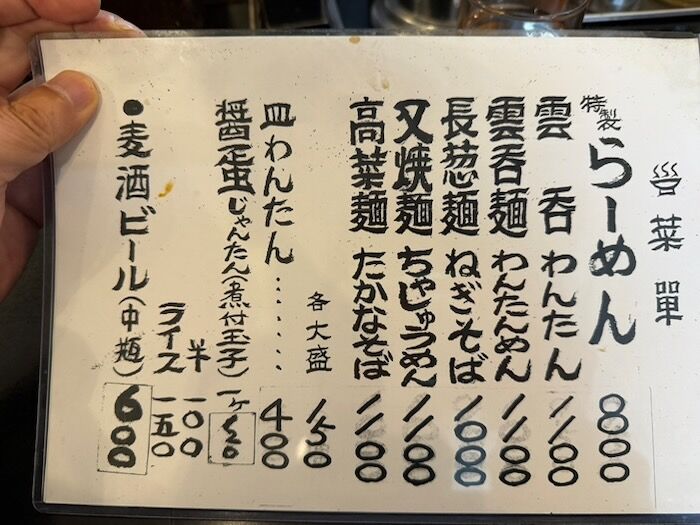 菜單
特製らーめん 800
雲呑 わんたん 1100
雲呑麺 わんたんめん 1100
長葱麺 ねぎそば 1000
叉焼麺 ちゃしゅうめん 1100
高菜麺 たかなそば 1100
各大盛 150
皿わんたん・・・・・・・ 400
醤蛋 じゃんたん(煮付玉子) 一ヶ
半 一〇〇
ライス 一五〇
●麦酒ビール(中瓶) 600